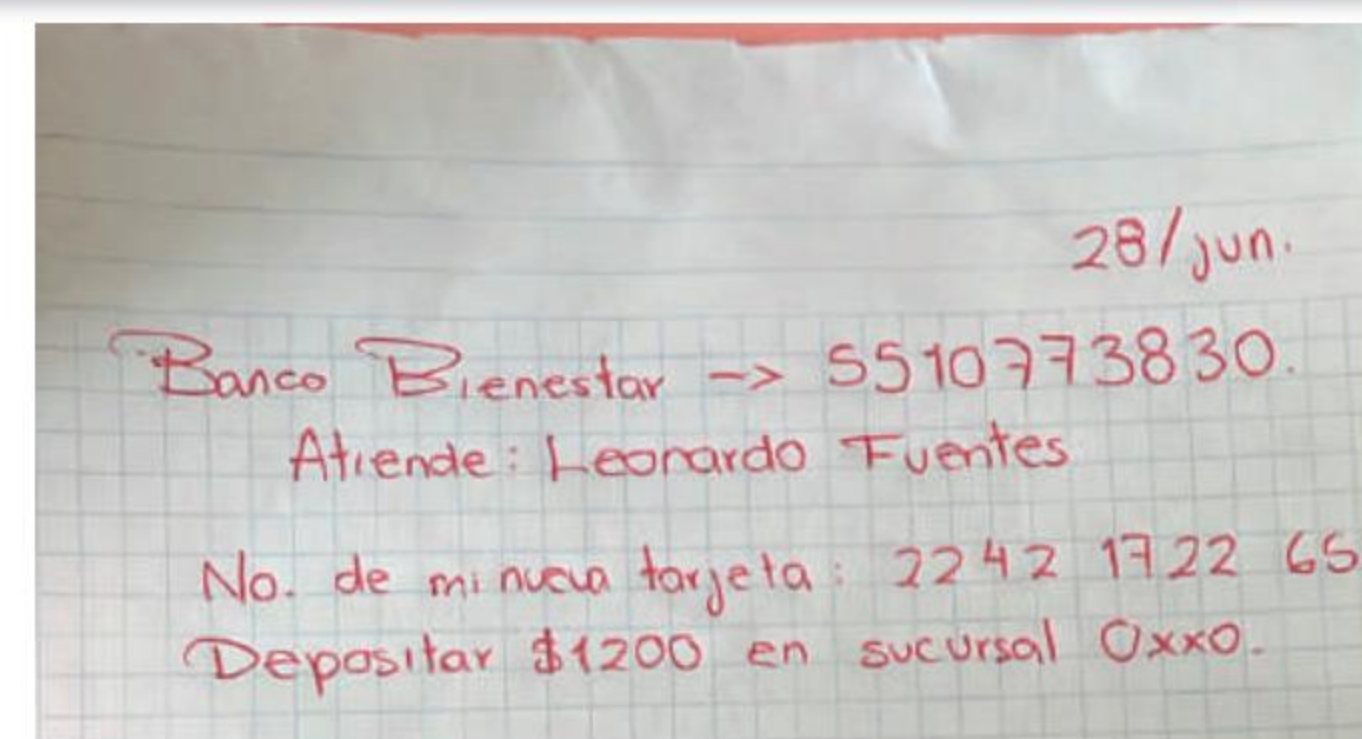 28/jun.
Banco Bienestar -> 5510773830.
Atiende: Leonardo Fuentes
No. de mi nueva tarjeta: 2242 1722 65
Depositar $1200 en sucursal Oxxo.